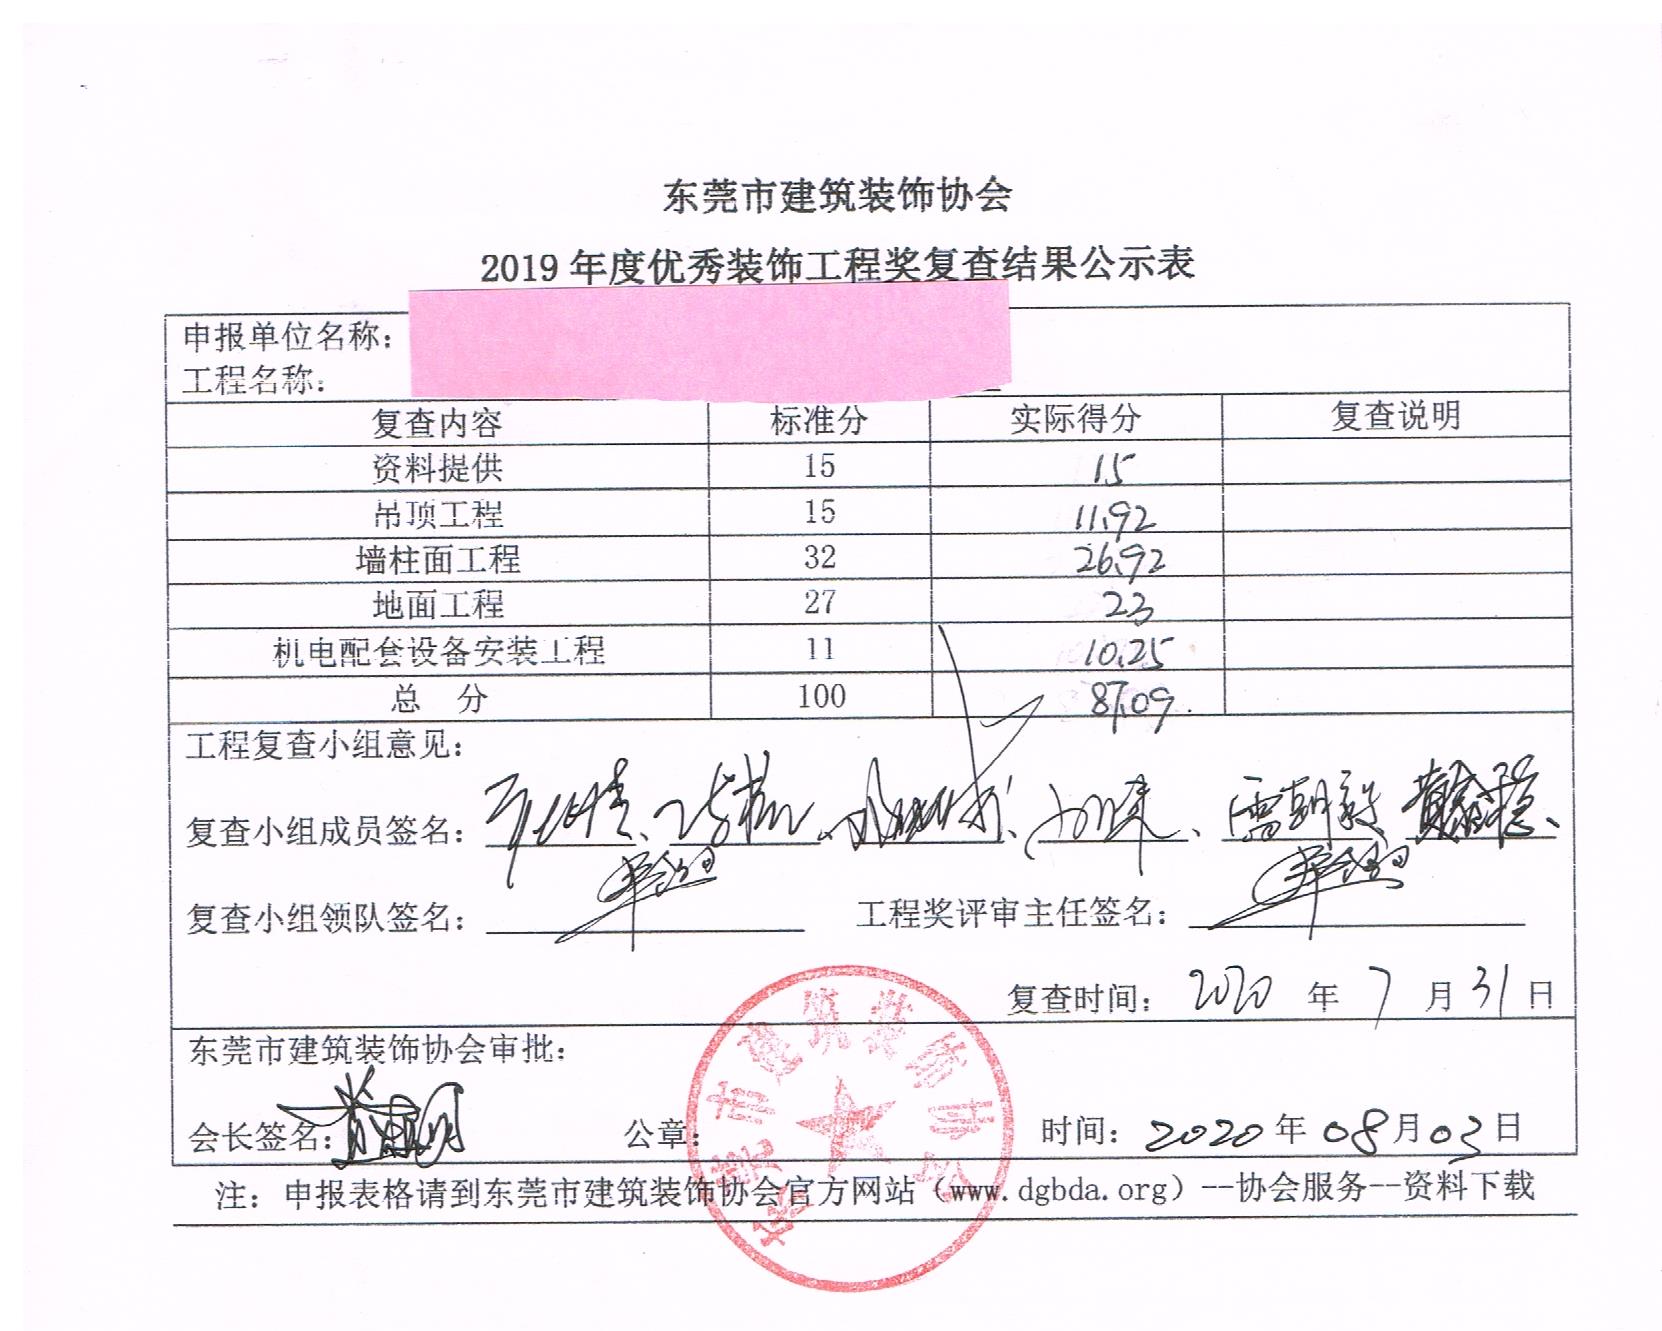 东莞市建筑装饰协会
2019 年度优秀装饰工程奖复查结果公示表
申报单位名称：
工程名称：
复查内容 标准分 实际得分 复查说明
资料提供 15 15
吊顶工程 15 11.92
墙柱面工程 32 26.92
地面工程 27 23
机电配套设备安装工程 11 10.25
总 分 100 87.09
工程复查小组意见：
复查小组成员签名：
复查小组领队签名： 工程奖评审主任签名：
复查时间： 2020 年 7 月 31 日
东莞市建筑装饰协会审批：
会长签名： 公章： 时间： 2020 年 08 月 03 日
注：申报表格请到东莞市建筑装饰协会官方网站（www.dgbda.org）--协会服务--资料下载
东莞市建筑装饰协会